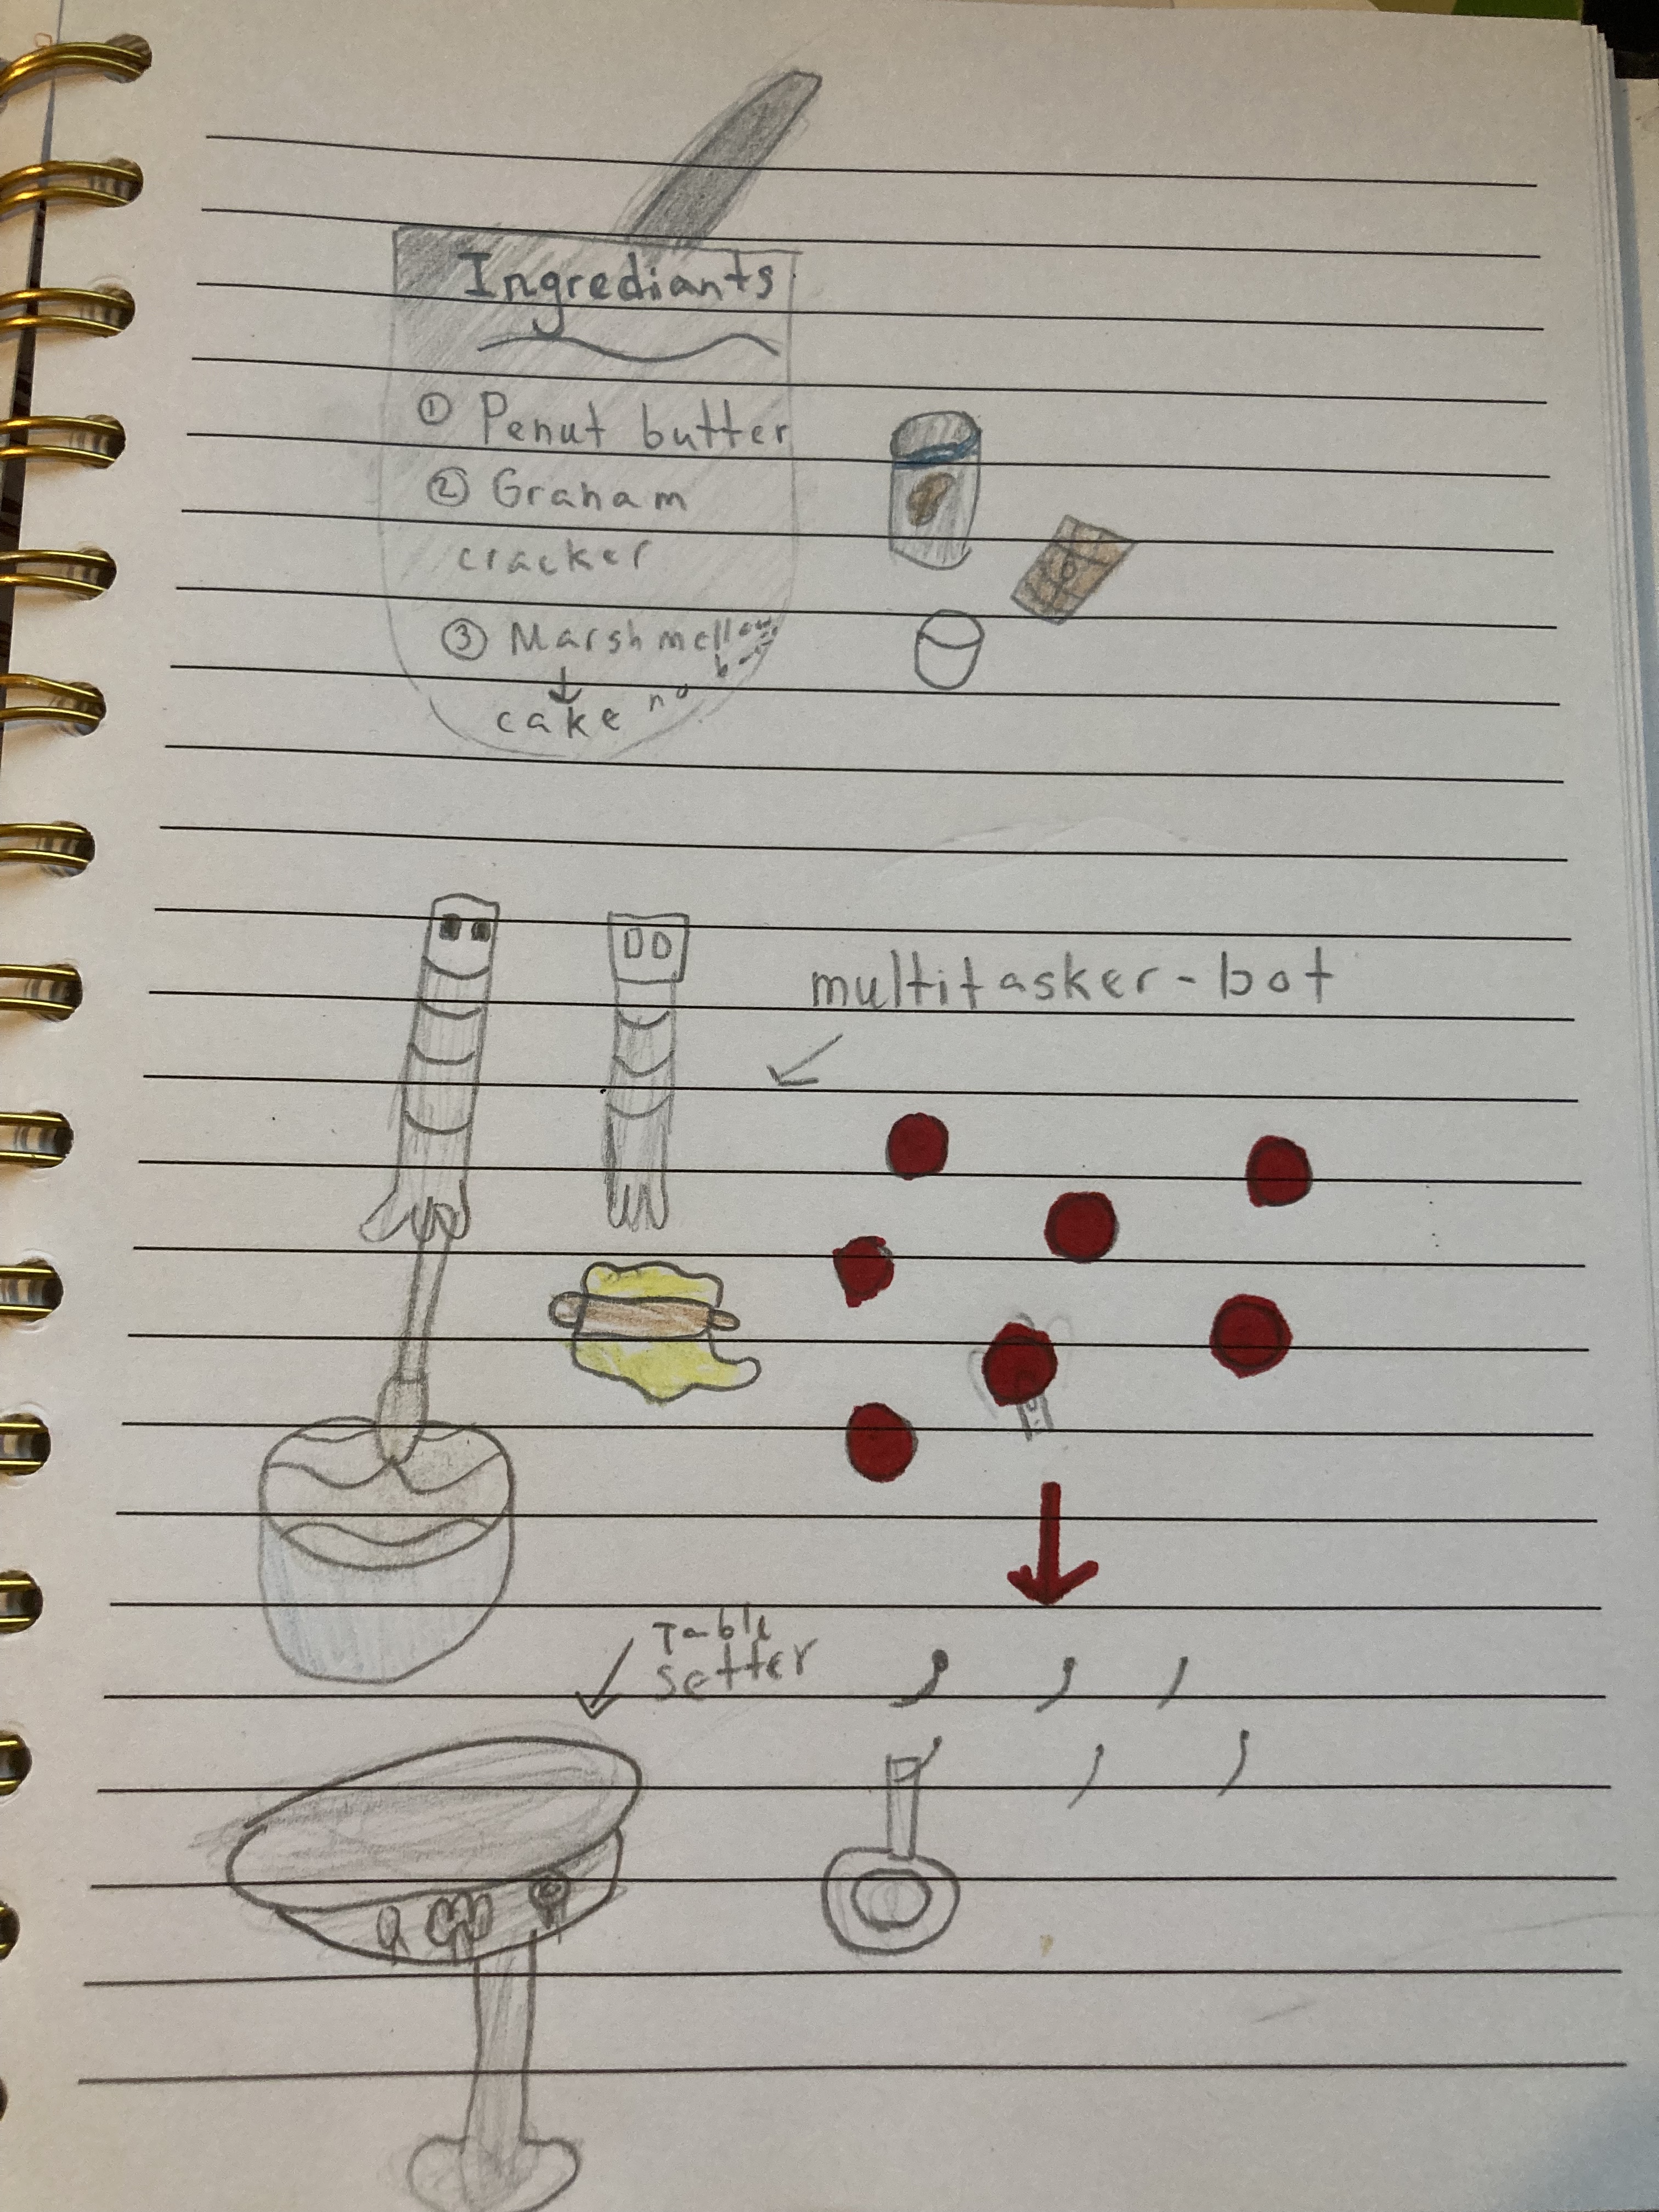 Ingrediants
① Penut butter
② Graham
cracker
③ Marshmellow
cake no b
multitasker-bot
Table
setter